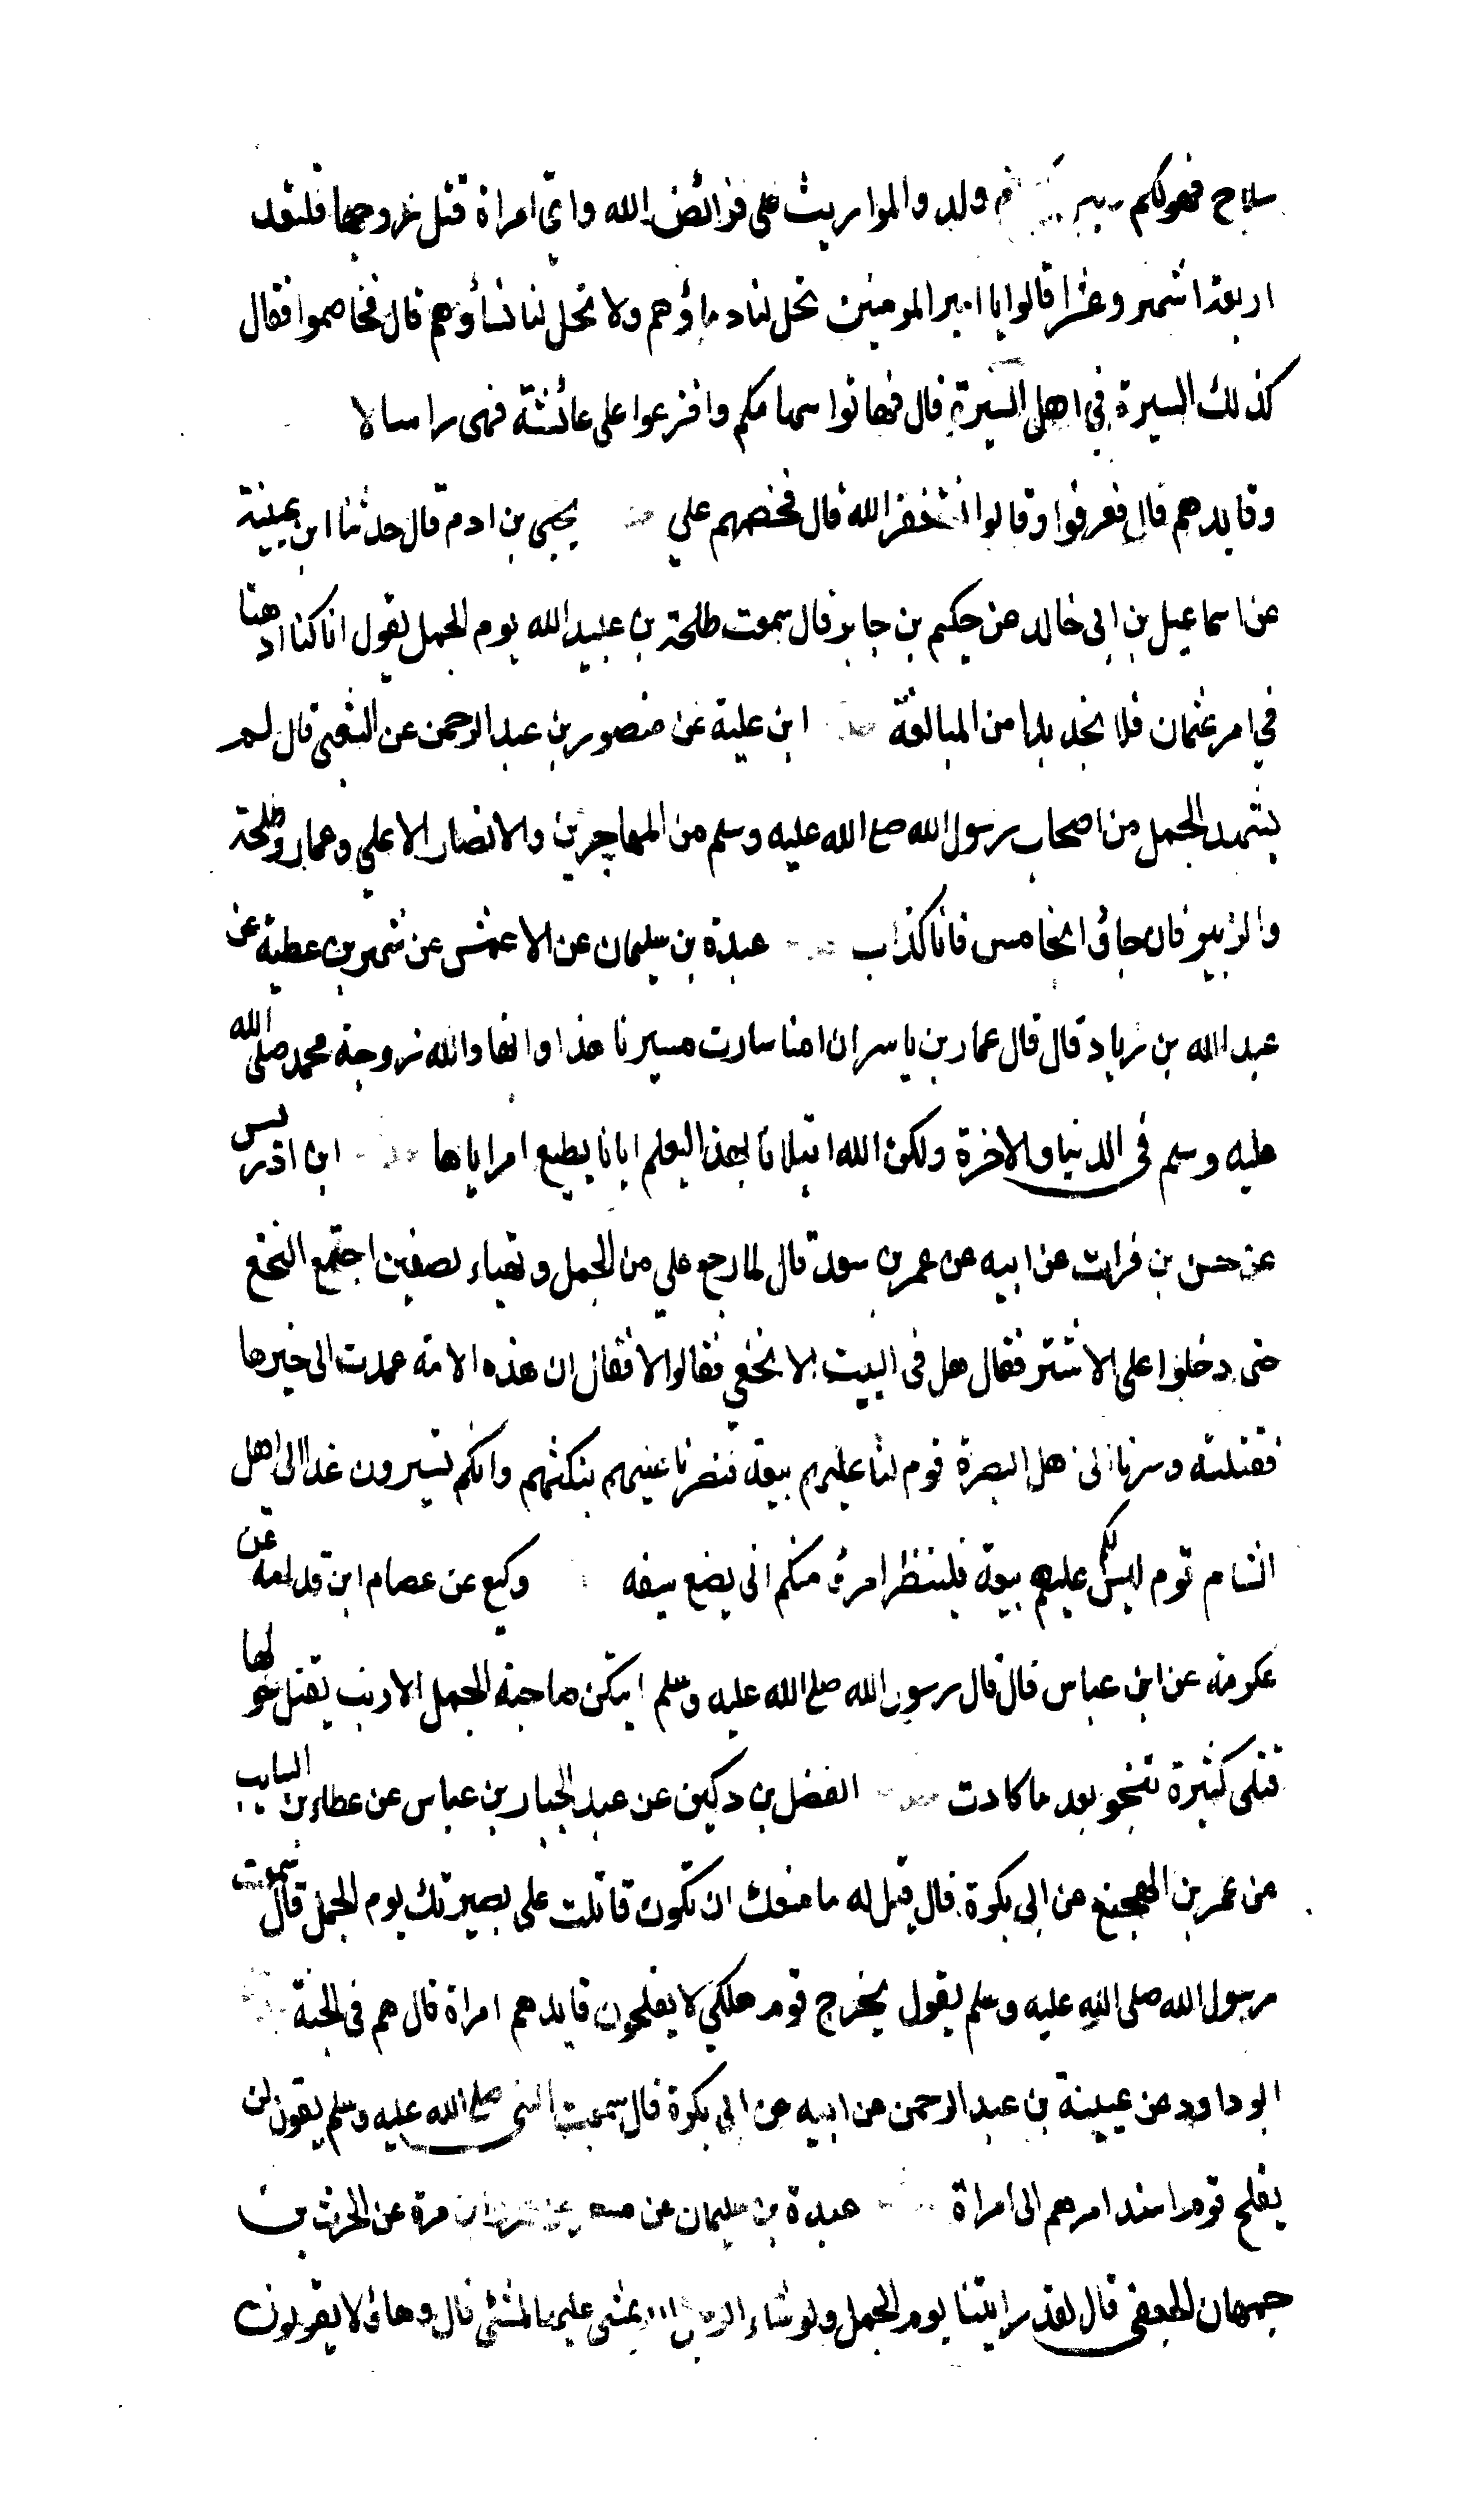 سلاح فهو لكم ولد والمواريث على فرائض الله واي امراة قتل زوجها فلتعتد
اربعة اشهر وعشرا قالوا يا امير المومنين تحل لنا دماؤهم ولا تحل لنا نساؤهم قال فخاصموا فقال
كذلك السيرة في اهل السيرة قال فهاتوا سهامكم واقرعوا على عائشة فهى راس الا
وقايدهم قال فعرفوا وقالوا نستغفر الله قال فخصمهم علي يحيى بن ادم قال حدثنا ابن عيينة
عن اسماعيل بن ابى خالد عن حكيم بن جابر قال سمعت طلحة بن عبيد الله يوم الجمل يقول انا كنا ادهنا
في امر عثمان فلا نجد بدا من المبالغة ابن علية عن منصور بن عبد الرحمن عن الشعبى قال لم
يشهد الجمل من اصحاب رسول الله صلع الله عليه وسلم من المهاجرين والانصار الا علي وعمار وطلحة
والزبير فان جاؤا بخامس فانا كذاب عبدة بن سليمان عن الاعمش عن شمر بن عطية عن
عبد الله بن زياد قال قال عمار بن ياسر ان امنا سارت مسيرنا هذا وانها والله زوجة محمد صلى الله
عليه وسلم فى الدنيا والاخرة ولكن الله ابتلانا بهذا ليعلم ايانا يطيع ام اياها ابن ادريس
عن حسن بن فرات عن ابيه عن عمر بن سعد قال لما رجع علي من الجمل وتهياء لصفين اجتمع النخع
حتى دخلوا على الاشتر فقال هل فى البيت الا نخعي فقالوا لا فقال ان هذه الامة عمدت الى خيرها
فقتلته وسرنا الى اهل البصرة قوم لنا عليهم بيعة فنصرنا عليهم بنكثهم وانكم تسيرون غدا الى اهل
الشام قوم ليس لكم عليهم بيعة فلينظر امرئ منكم انى يضع سيفه وكيع عن عصام ابن قدامة عن
عكرمة عن ابن عباس قال قال رسول الله صلع الله عليه وسلم ايتكن صاحبة الجمل الادبب يقتل حولها
قتلى كثيرة تنجو بعد ما كادت الفضل بن دكين عن عبد الجبار بن عباس عن عطاء بن السايب
عن عمر بن الهجنع عن ابى بكرة قال قيل له ما منعك ان تكون قاتلت على بصيرتك يوم الجمل قال سمعت
رسول الله صلى الله عليه وسلم يقول يخرج قوم هلكي لا يفلحون قايدهم امراة قال هم فى الجنة
ابو داود عن عيينة بن عبد الرحمن عن ابيه عن ابى بكرة قال سمعت النبى صلع الله عليه وسلم يقول لن
يفلح قوم اسند امرهم الى امراة عبدة بن سليمان عن مسعر عن مرة عن الحرث بن
جمهان الجعفى قال لقد رايتنا يوم الجمل ولو شاء الرجل ان يمشى عليها لمشى قال وهاؤلا يقولون